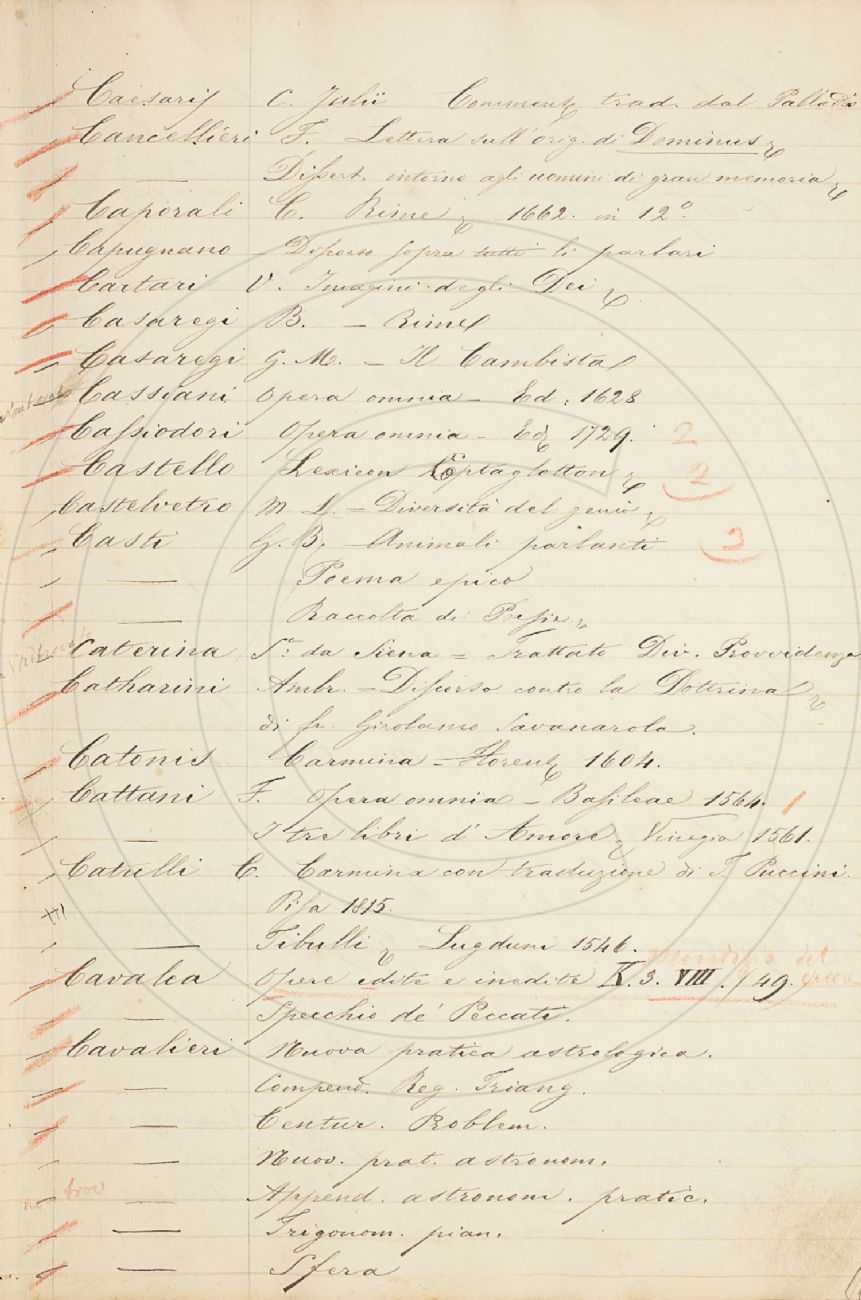 Caesaris C. Julii Comment. trad. dal Palladio
Cancellieri F. Lettera sull'orig. di Dominus
— Dissert. intorno agli uomini di gran memoria
Caporali C. Rime 1662. in 12.º
Capugnano — Discorso sopra tutti li parlari
Cartari V. Imagini degli Dei
Casaregi B. — Rime
Casaregi G. M. — Il Cambista
Cassiani Opera omnia — Ed. 1628
Cassiodori Opera omnia — Ed. 1729. 2
Castello Lexicon Eptaglotton 2
Castelvetro — Diversità del genio
Casti G. B. — Animali parlanti 3
— Poema epico
— Raccolta di Poesie
Caterina S.ª da Siena = Trattato Div. Provvidenza
Catharini Ambr. = Discorso contro la Dottrina
di fr. Girolamo Savanarola.
Catonis Carmina — Florent. 1604.
Cattani F. Opera omnia — Basileae 1564.
— I tre libri d'Amore Vinegia 1561.
Catulli C. Carmina con traduzione di T. Puccini.
Pisa 1815.
— Tibulli Lugduni 1546.
Cavalca Opere edite e inedite X. 3. VIII. / 49.
— Specchio de' Peccati.
Cavalieri Nuova pratica astrologica.
— Compend. Reg. Triang.
— Centur. Problem.
— Nuov. prat. astronom.
non trov — Append. astronom. pratic.
— Trigonom. pian.
— Sfera